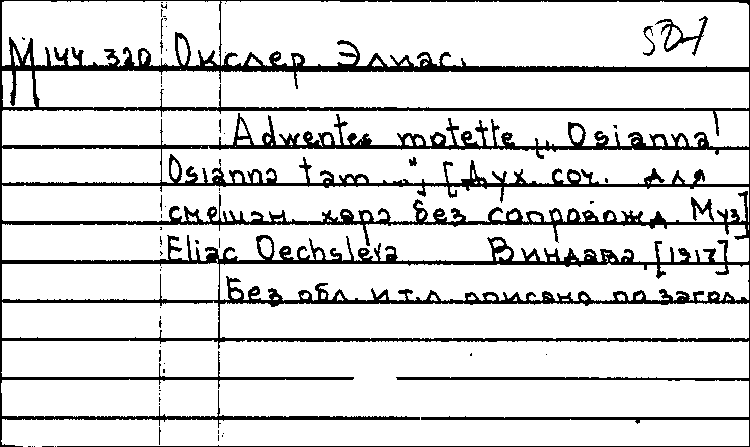 М 144.320 Окслер Элиас.
Adwentes motette „ Osianna!
Osianna tam ..."; [Дух. соч. для
смешан. хора без сопровожд. Муз]
Eliac Oechslera Виндава, [1917]
Без обл. и т.л. описано по загол.